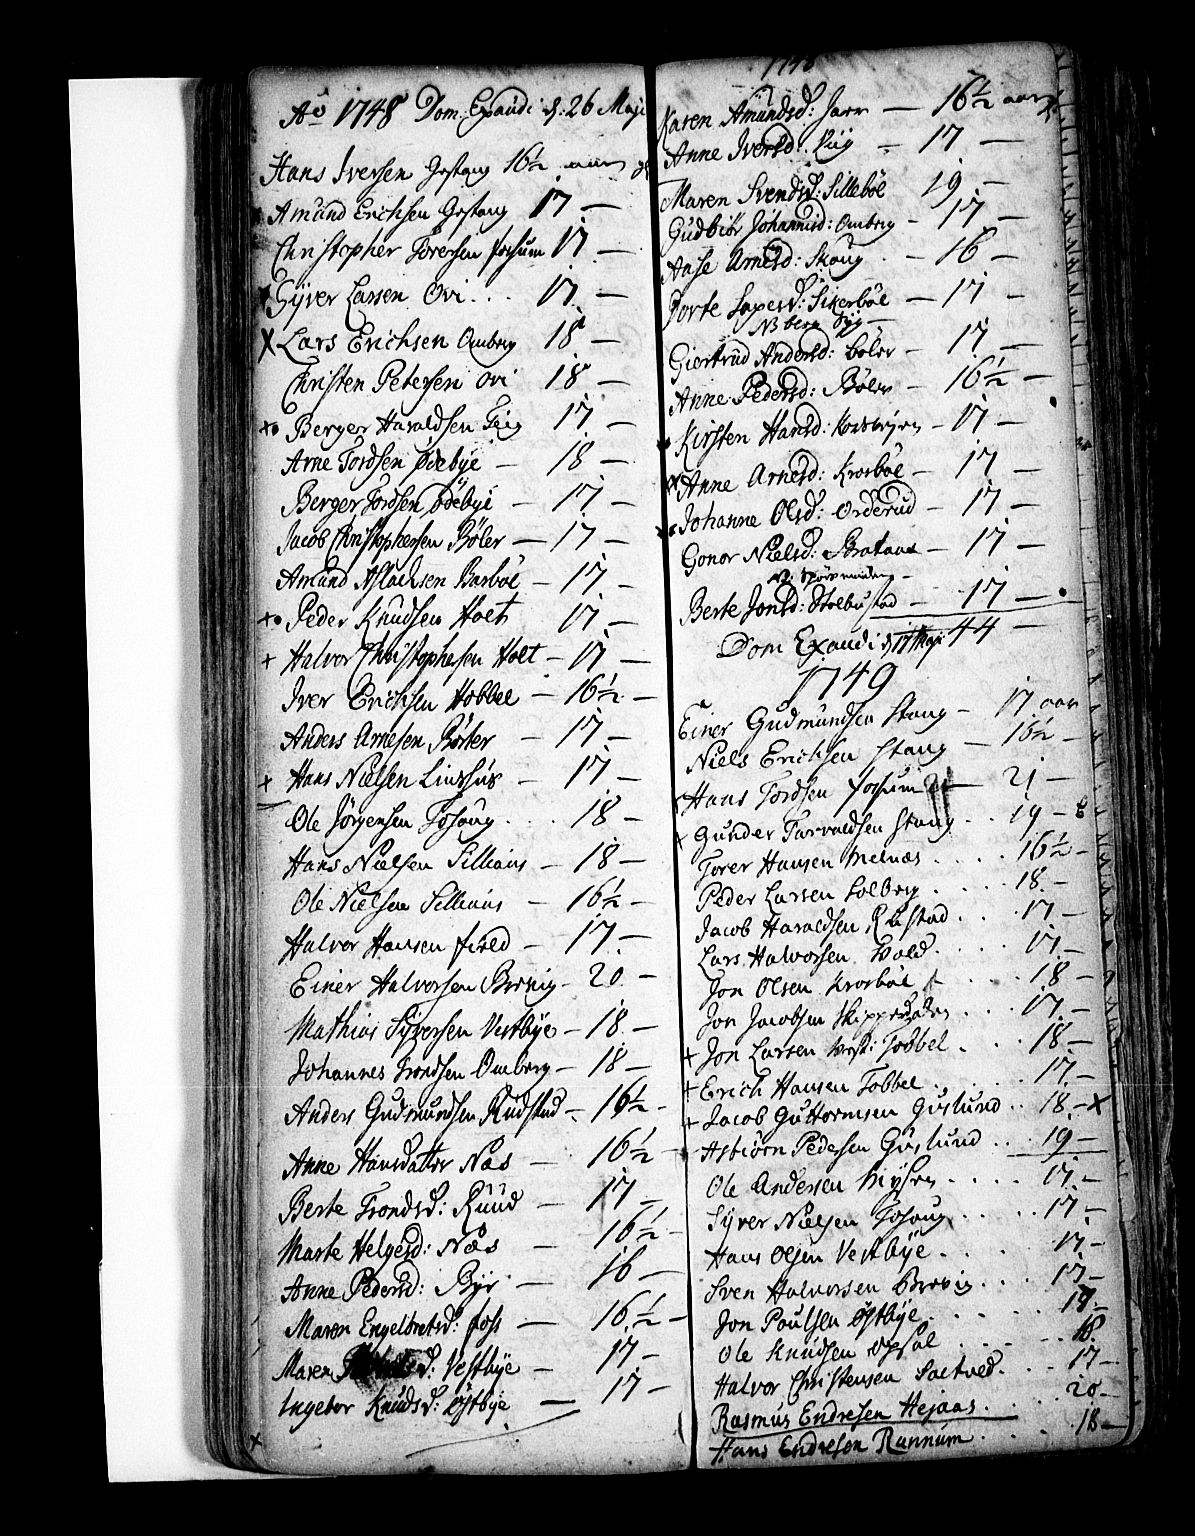 Aō 1748 Dom: Exaudi d: 26 Maji
Hans Iversen Gestang 16½ aar
Amund Erichsen Gestang 17 —
Christopher Torersen fossum 17 —
Gÿver Larsen Ovi . . . 17 —
X Lars Erichsen Omberg 18 —
Christen Petersen Ovi 18 —
+ Berger Haraldsen Teig 17 —
Arne Tordsen Ødebÿe — 18 —
Berger Tordsen Ødebÿe — 17 —
Jacob Christophersen Bøler — 17 —
Amund Aslachsen Barbøl — 17 —
+ Peder Knudsen Holt 17 —
+ Halvor Christophersen Holt — 17 —
Iver Erichsen Hobbel — 16½ —
Anders Arnesen Bøler — 17 —
+ Hans Nielsen 17 —
Ole Jørgensen Tosang . . . 18 —
Hans Nielsen Sillians — 18 —
Ole Nielsen Sillians — 16½ —
Halvor Hansen field — 17 —
Einer Halvorsen Brevig — 20 —
Mathias Sÿversen Vestbÿe — 18 —
Johannes Trondsen Omberg — 18 —
Anders Gudmundsen Rudstad — 16½ —
Anne Hansdatter Næs — 16½ —
Berte Trondsd: Ruud — 17 —
Marte Helgesd: Næs — 16½ —
Anne Pedersd: Bÿe — 16 —
Maren Engelbretsd: foss — 16½ —
Maren Vestbÿe — 17 —
Ingebor Knudsd: Østbÿe — 17 —
1748
Karen Amundsd: Jarr — 16½ aar
Anne Iversd: — 17 —
Maren Svendsd: Sillebøl 19 —
Gudbiør Johannisd: Omberg — 17 —
Aase Arnesd: Skoug — 16 —
Dorte Sikerbøl — 17 —
Giertrud Andersd: Bøler — 17 —
Anne Pedersd: Bøler — 16½ —
Kirsten Hansd: — 17 —
Anne Arnesd: Krosbøl — 17 —
Johanne Olsd: Orderud — 17 —
Gonor Nielsd: — 17 —
Berte Jonsd: Stolbustad — 17 —
44 —
Dom Exaudi d 17 Maji
1749
Einer Gudmundsen Stang — 17 aar
Niels Erichsen Stang — 16½ —
Hans Tordsen fossum — 21 —
+ Gunder Tarvaldsen Stang . . 19 —
Torer Hansen Melnæs . . . . 16½ —
Peder Larsen Solberg . . . . 18 —
Jacob Haraldsen . . . 17 —
Lars Halvorsen Vold . . . . 17 —
Jon Olsen Krosbøl . . . . 18 —
Jon Jacobsen . . . 17 —
+ Jon Larsen Tobbel . . . 18 —
+ Erich Hansen Tobbel . . . . 17 —
+ Jacob Guttormsen Guslund . . 18 — X
Asbiørn Pedersen Guslund . . . 19 —
Ole Andersen Mÿsen . . . . 17 —
Sÿver Nielsen Tosang . . . . 17 —
Hans Olsen Vestbÿe . . . . 17 —
Sven Halvorsen Brevig . . . . 17 —
Jon Poulsen Østbÿe . . . . 19 —
Ole Knudsen Opsal . . . . 18
Halvor Christensen Sætved . . . 17 —
Rasmus Endresen Hejaas . . . . 20 —
Hans Endresen Rannum . . . . 18 —